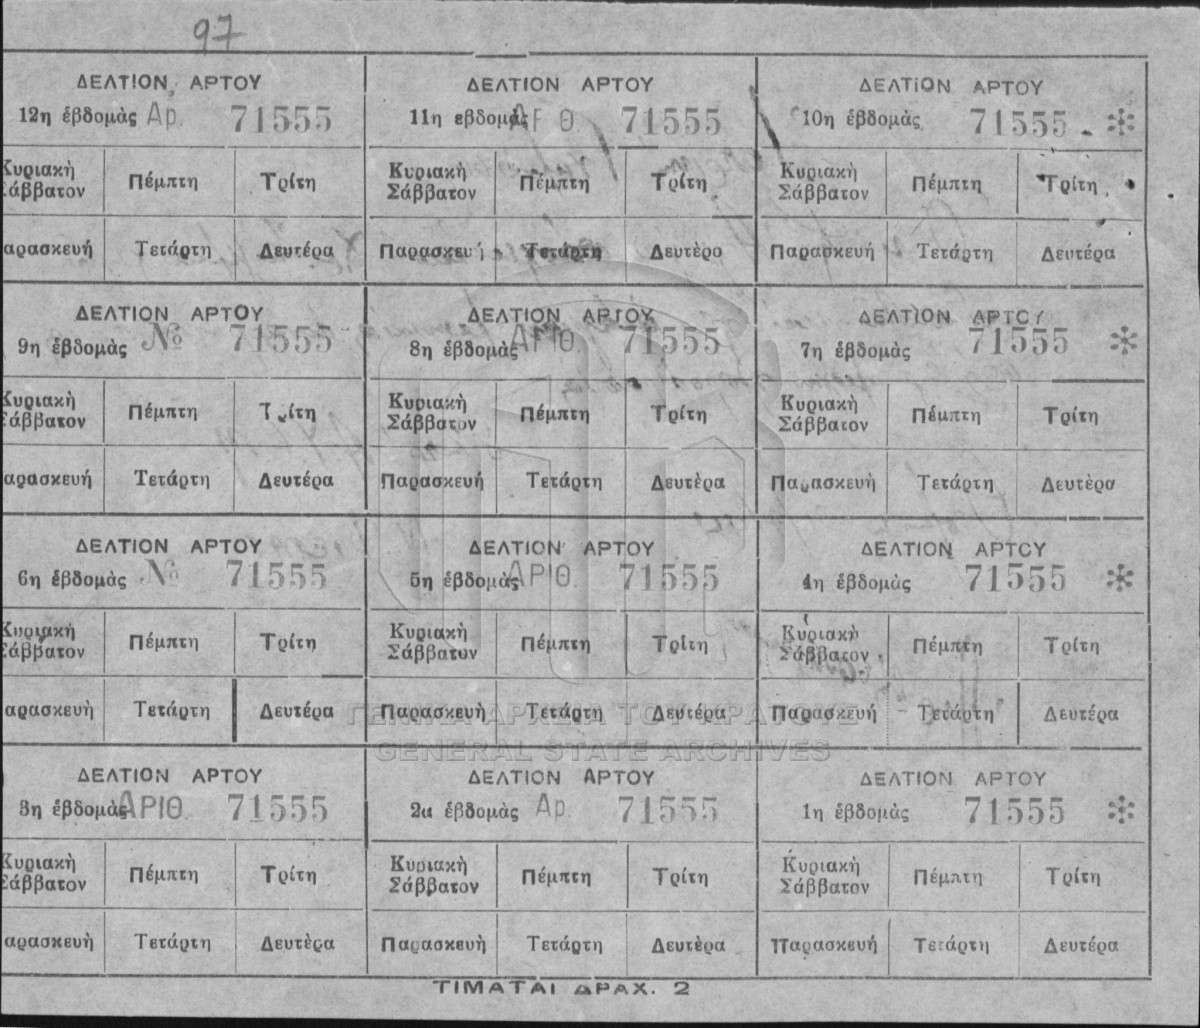 97
ΔΕΛΤΙΟΝ ΑΡΤΟΥ
12η ἑβδομὰς Αρ. 71555
Κυριακὴ Σάββατον Πέμπτη Τρίτη
αρασκευή Τετάρτη Δευτέρα
ΔΕΛΤΙΟΝ ΑΡΤΟΥ
11η εβδομὰς ΑΡ Θ. 71555
Κυριακὴ Σάββατον Πέμπτη Τρίτη
Παρασκευή Τετάρτη Δευτέρο
ΔΕΛΤΙΟΝ ΑΡΤΟΥ
10η ἑβδομὰς 71555 *
Κυριακὴ Σάββατον Πέμπτη Τρίτη
Παρασκευή Τετάρτη Δευτέρα
ΔΕΛΤΙΟΝ ΑΡΤΟΥ
9η ἑβδομὰς № 71555
Κυριακὴ Σάββατον Πέμπτη Τρίτη
αρασκευή Τετάρτη Δευτέρα
ΔΕΛΤΙΟΝ ΑΡΤΟΥ
8η ἑβδομὰς ΑΡΙΘ. 71555
Κυριακὴ Σάββατον Πέμπτη Τρίτη
Παρασκευή Τετάρτη Δευτὲρα
ΔΕΛΤΙΟΝ ΑΡΤΟΥ
7η ἑβδομὰς 71555 *
Κυριακὴ Σάββατον Πέμπτη Τρίτη
Παρασκευὴ Τετάρτη Δευτὲρα
ΔΕΛΤΙΟΝ ΑΡΤΟΥ
6η ἑβδομὰς № 71555
Κυριακή Σάββατον Πέμπτη Τρίτη
αρασκευὴ Τετάρτη Δευτέρα
ΔΕΛΤΙΟΝ ΑΡΤΟΥ
5η ἑβδομὰς ΑΡΙΘ. 71555
Κυριακὴ Σάββατον Πέμπτη Τρίτη
Παρασκευὴ Τετάρτη Δευτέρα
ΔΕΛΤΙΟΝ ΑΡΤΟΥ
4η ἑβδομὰς 71555 *
Κυριακὴ Σάββατον Πέμπτη Τρίτη
Παρασκευή Τετάρτη Δευτέρα
ΓΕΝΙΚΑ ΑΡΧΕΙΑ ΤΟΥ ΚΡΑΤΟΥΣ
GENERAL STATE ARCHIVES
ΔΕΛΤΙΟΝ ΑΡΤΟΥ
3η ἑβδομὰς ΑΡΙΘ. 71555
Κυριακὴ Σάββατον Πέμπτη Τρίτη
αρασκευὴ Τετάρτη Δευτὲρα
ΔΕΛΤΙΟΝ ΑΡΤΟΥ
2α ἑβδομὰς Αρ. 71555
Κυριακὴ Σάββατον Πέμπτη Τρίτη
Παρασκευὴ Τετάρτη Δευτὲρα
ΔΕΛΤΙΟΝ ΑΡΤΟΥ
1η ἑβδομὰς 71555 *
Κυριακὴ Σάββατον Πέμπτη Τρίτη
Παρασκευή Τετάρτη Δευτέρα
ΤΙΜΑΤΑΙ ΔΡΑΧ. 2